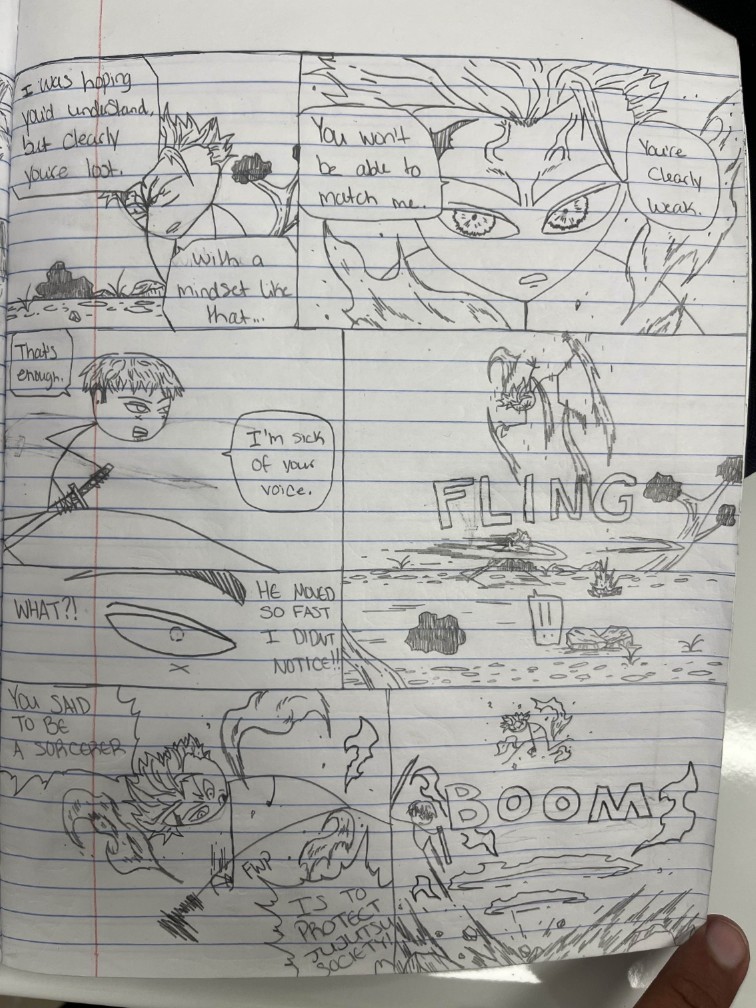 I was hoping
you'd understand,
but clearly
you're lost.
With a
mindset like
that...
You won't
be able to
match me.
You're
Clearly
Weak.
That's
enough.
I'm sick
of your
voice.
FLING
WHAT?!
HE MOVED
SO FAST
I DIDNT
NOTICE!!
!!
YOU SAID
TO BE
A SORCERER
FWP
IS TO
PROTECT
JUJUTSU
SOCIETY!
BOOM